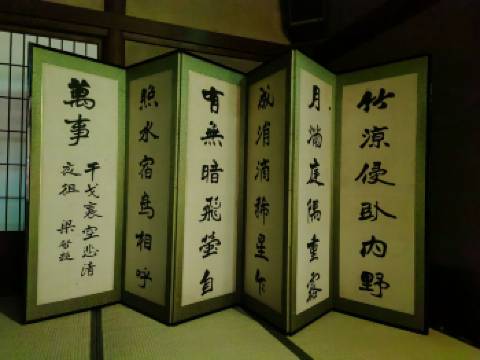 竹涼侵卧内野
月滿庭隅重露
成涓滴稀星乍
有無暗飛螢自
照水宿鳥相呼
萬事
干戈裏空悲清
夜徂
梁啓超